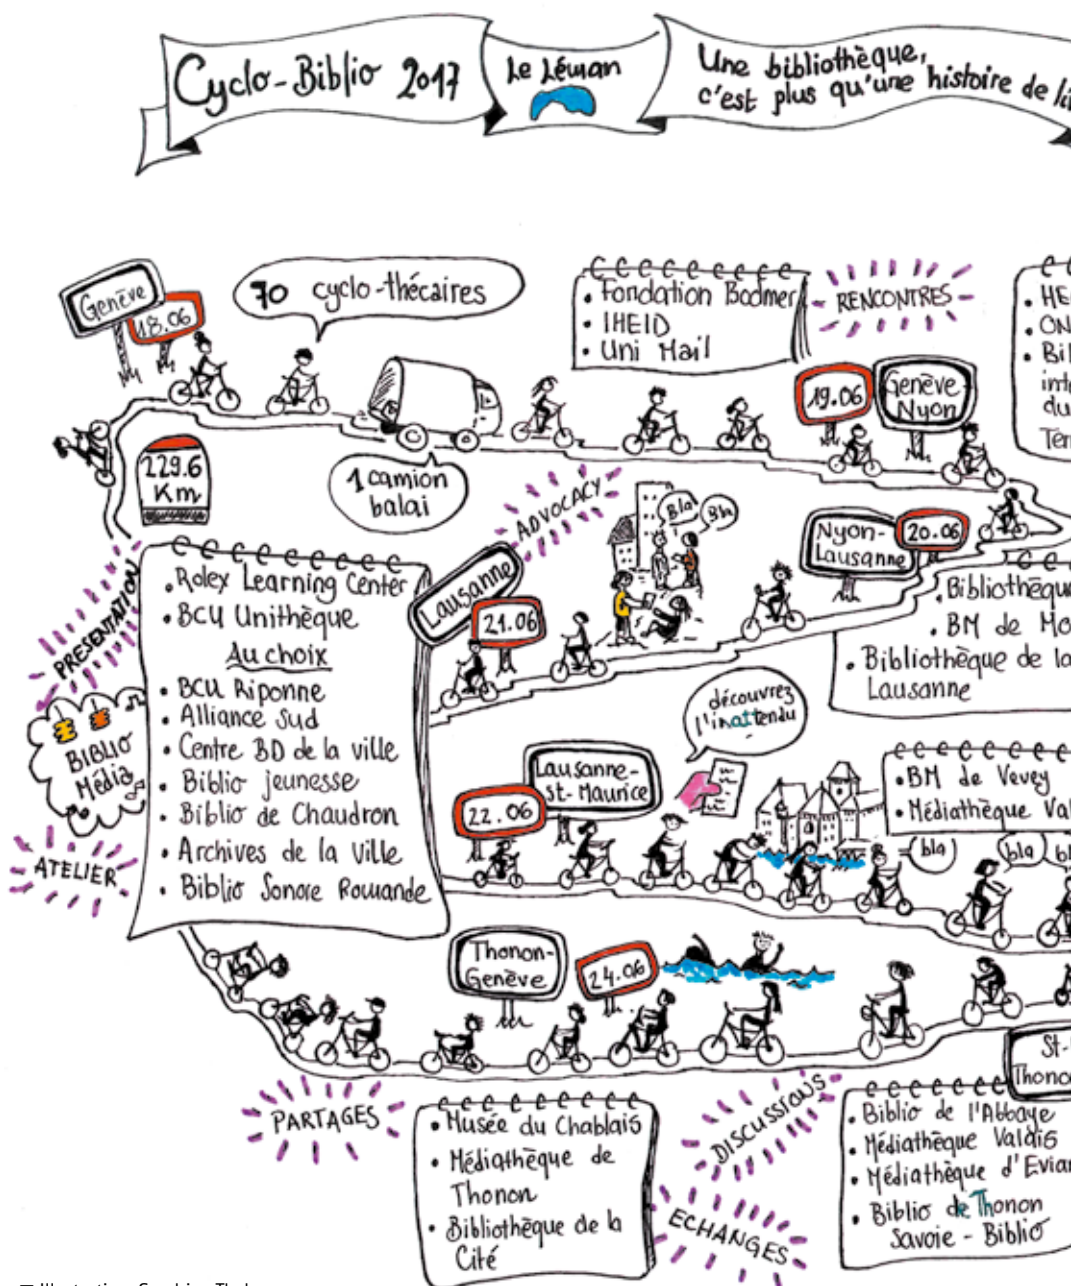 Cyclo-Biblio 2017
Le Léman
Une bibliothèque,
c'est plus qu'une histoire de
Genève
18.06
70 cyclo-thécaires
Fondation Bodmer
IHEID
Uni Mail
RENCONTRES
19.06
Genève-
Nyon
229.6
Km
1 camion
balai
ADVOCACY
Bla
Bla
Nyon-
Lausanne
20.06
PRESENTATION
Rolex Learning Center
BCU Unithèque
Au choix
BCU Riponne
Alliance Sud
Centre BD de la ville
Biblio jeunesse
Biblio de Chaudron
Archives de la Ville
Biblio Sonore Romande
Lausanne
21.06
BM de
Bibliothèque de la
Lausanne
BIBLIO
Média
ATELIER
découvrez
l'inattendu
Lausanne-
St-Maurice
22.06
BM de Vevey
Médiathèque
bla
bla
Thonon-
Genève
24.06
PARTAGES
Musée du Chablais
Médiathèque de
Thonon
Bibliothèque de la
Cité
DISCUSSIONS
ECHANGES
Biblio de l'Abbaye
Médiathèque Valais
Médiathèque
Biblio de Thonon
Savoie - Biblio